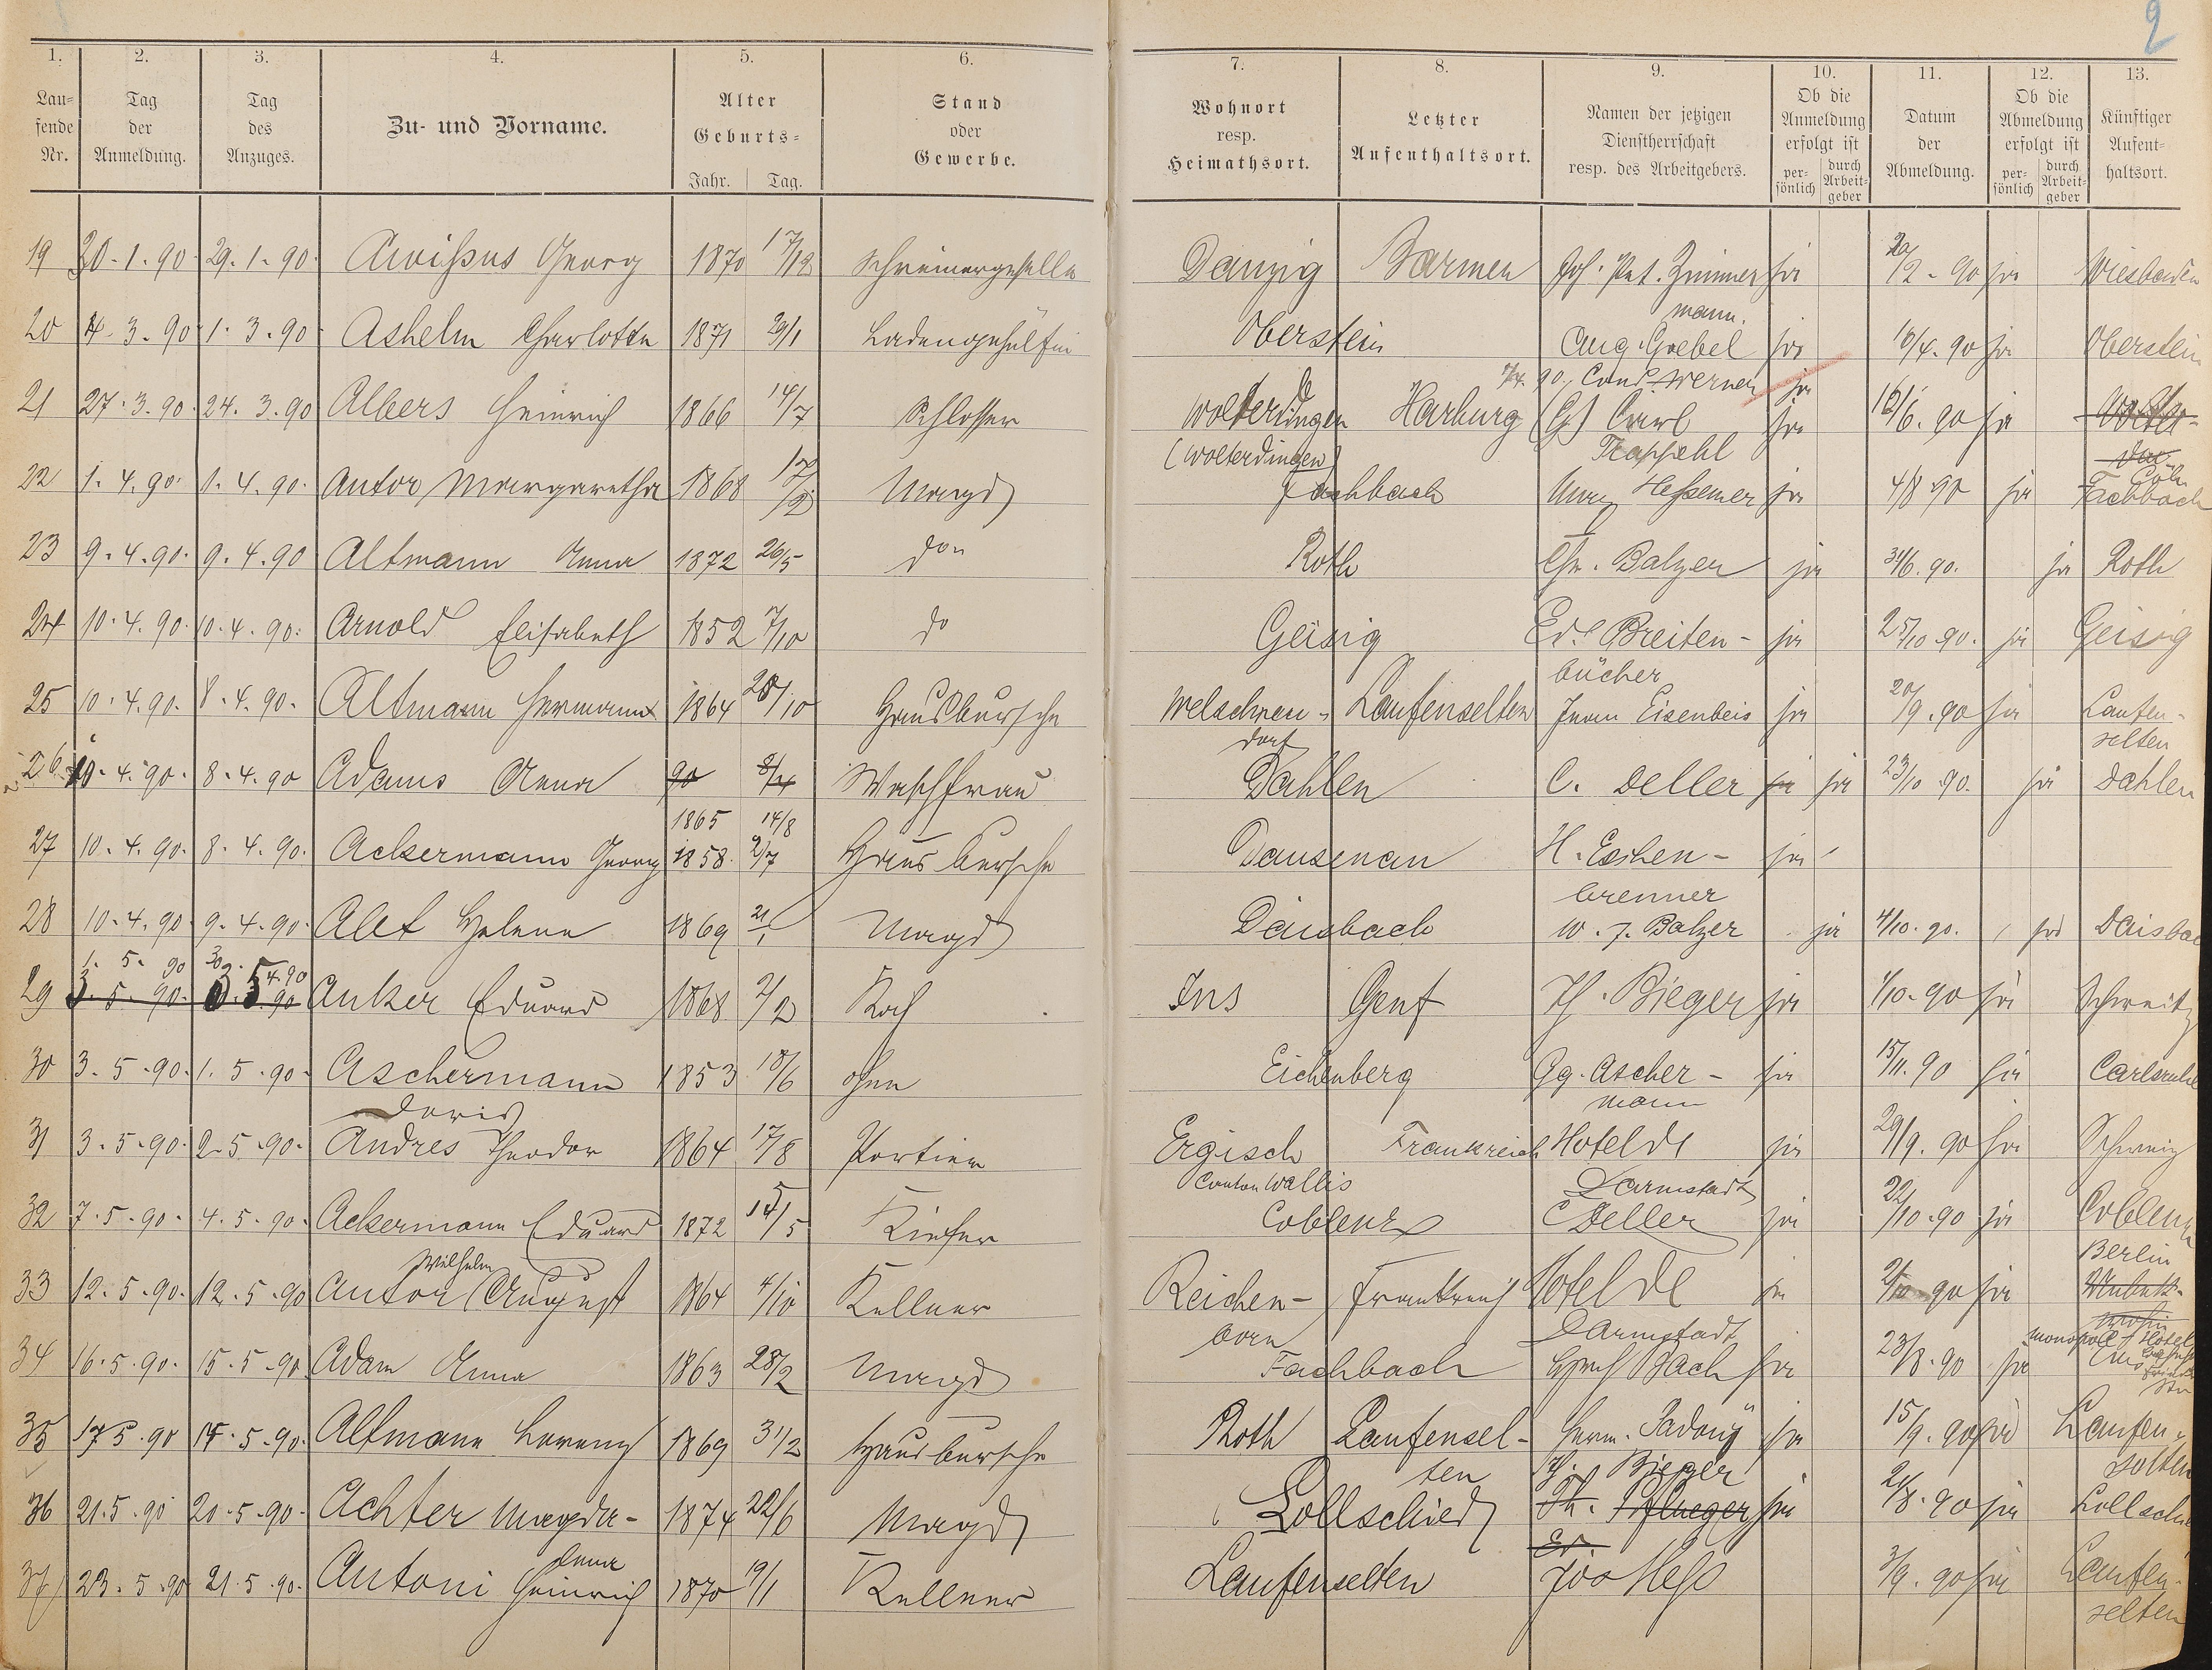 2
1. 2. 3. 4. 5. 6. 7. 8. 9. 10. 11. 12. 13.
Lau=
fende
Nr.
Tag
der
Anmeldung.
Tag
des
Anzuges.
Zu- und Vorname.
Alter
Geburts=
Jahr. Tag.
Stand
oder
Gewerbe.
Wohnort
resp.
Heimathsort.
Letzter
Aufenthaltsort.
Namen der jetzigen
Dienstherrschaft
resp. des Arbeitgebers.
Ob die
Anmeldung
erfolgt ist
per-
sönlich
durch
Arbeit-
geber
Datum
der
Abmeldung.
Ob die
Abmeldung
erfolgt ist
per-
sönlich
durch
Arbeit-
geber
Künftiger
Aufent-
haltsort.
19 30.1.90 29.1.90 Awißus Georg 1870 17/12 Schreinergeselle Danzig Barmen Joh. Pet. Zimmer ja 20/2.90 ja Wiesbaden
mann.
20 4.3.90 1.3.90 Ashelm Charlotte 1871 29/1 Ladengehülfin Oberstein Aug. Goebel ja 10/4.90 ja Oberstein
90. Cond. Werner ja
21 27.3.90 24.3.90 Albers Heinrich 1866 14/7 Schlosser Wolterdingen Harburg (G) Carl ja 16/6.90 ja Wolter-
(Wolterdingen) Trappehl
Cöln
22 1.4.90 1.4.90 Antor Margaretha 1868 17/2 Magd Fachbach Hessemer ja 4/8 90 ja Fachbach
23 9.4.90 9.4.90 Altmann Anna 1872 26/5 do Roth Chr. Balzer ja 30/6.90 ja Roth
24 10.4.90 10.4.90 Arnold Elisabeth 1852 7/10 do Geisig Ed. Breiten- ja 25/10.90 ja Geisig
bücher
25 10.4.90 8.4.90 Altmann Hermann 1864 28/10 Hausbursche Welschneu- Laufenselten Eisenbeis ja 20/9.90 ja Laufen-
dorf selten
26 10.4.90 8.4.90 Adams Anna 90 8/4 Waschfrau Dahlen C. Deller ja ja 23/10.90 ja Dahlen
1865 14/8
27 10.4.90 8.4.90 Ackermann Georg 1858 2/7 Hausbursche Dausenau H. Eschen- ja
brenner
28 10.4.90 9.4.90 Alef Helena 1869 21/1 Magd Daisbach W. F. Balzer ja 4/10.90 ja Daisbach
1. 5. 90 30. 4.90
29 3.5.90 3.5.90 Anker Eduard 1868 2/2 Koch Ins Genf H. Bieger ja 1/10.90 ja Schweitz
30 3.5.90 1.5.90 Aschermann 1853 18/6 ohne Eichenberg Gg. Ascher- ja 15/11.90 ja Carlsruhe
Doris mann
31 3.5.90 2.5.90 Andres Theodor 1864 17/8 Portier Ergisch Frankreich Hotel de ja 29/9.90 ja Schweiz
Canton Wallis Darmstadt
32 7.5.90 4.5.90 Ackermann Eduard 1872 15/5 Kiefer Coblenz C Deller ja 22/10.90 ja Coblenz
Wilhelm Berlin
33 12.5.90 12.5.90 Antor August 1864 4/10 Kellner Reichen- Frankreich Hotel de ja 2/10 90 ja
born Darmstadt
Monopol Hotel
34 16.5.90 15.5.90 Adam Anna 1863 28/2 Magd Fachbach Bach ja 23/8.90 ja Ems
35 17.5.90 15.5.90 Altmann Lorenz 1869 3/12 Hausbursche Roth Laufensel- Herm. Sadony ja 15/9.90 ja Laufen-
ten H. Bieger selten
36 21.5.90 20.5.90 Achter Magda- 1874 22/6 Magd Lollschied Th. Pflueger ja 21/8.90 ja Lollschied
lena Ed.
37 23.5.90 21.5.90 Antoni Heinrich 1870 19/1 Kellner Laufenselten Jos Heß 3/9.90 ja Laufen-
selten